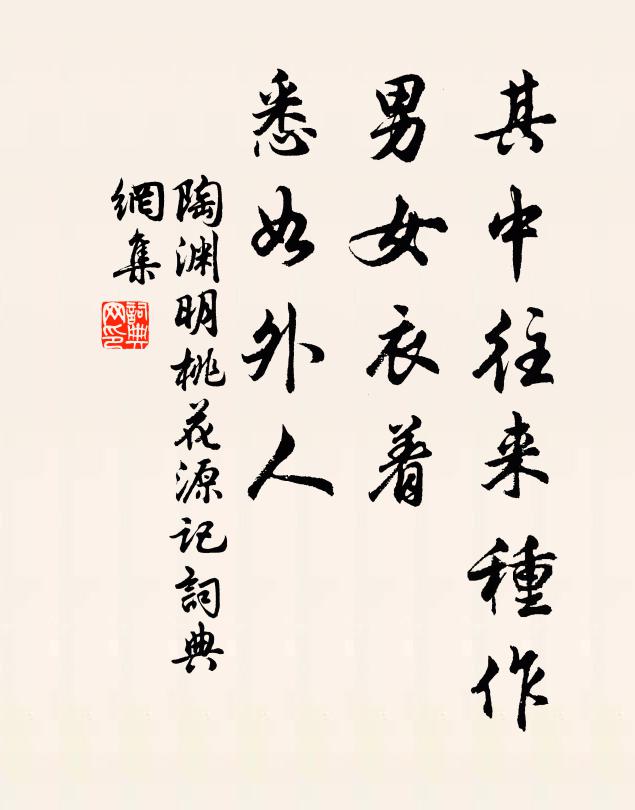 其中往来種作
男女衣着
悉如外人
陶渊明桃花源记詞典
網集
詞典
网印